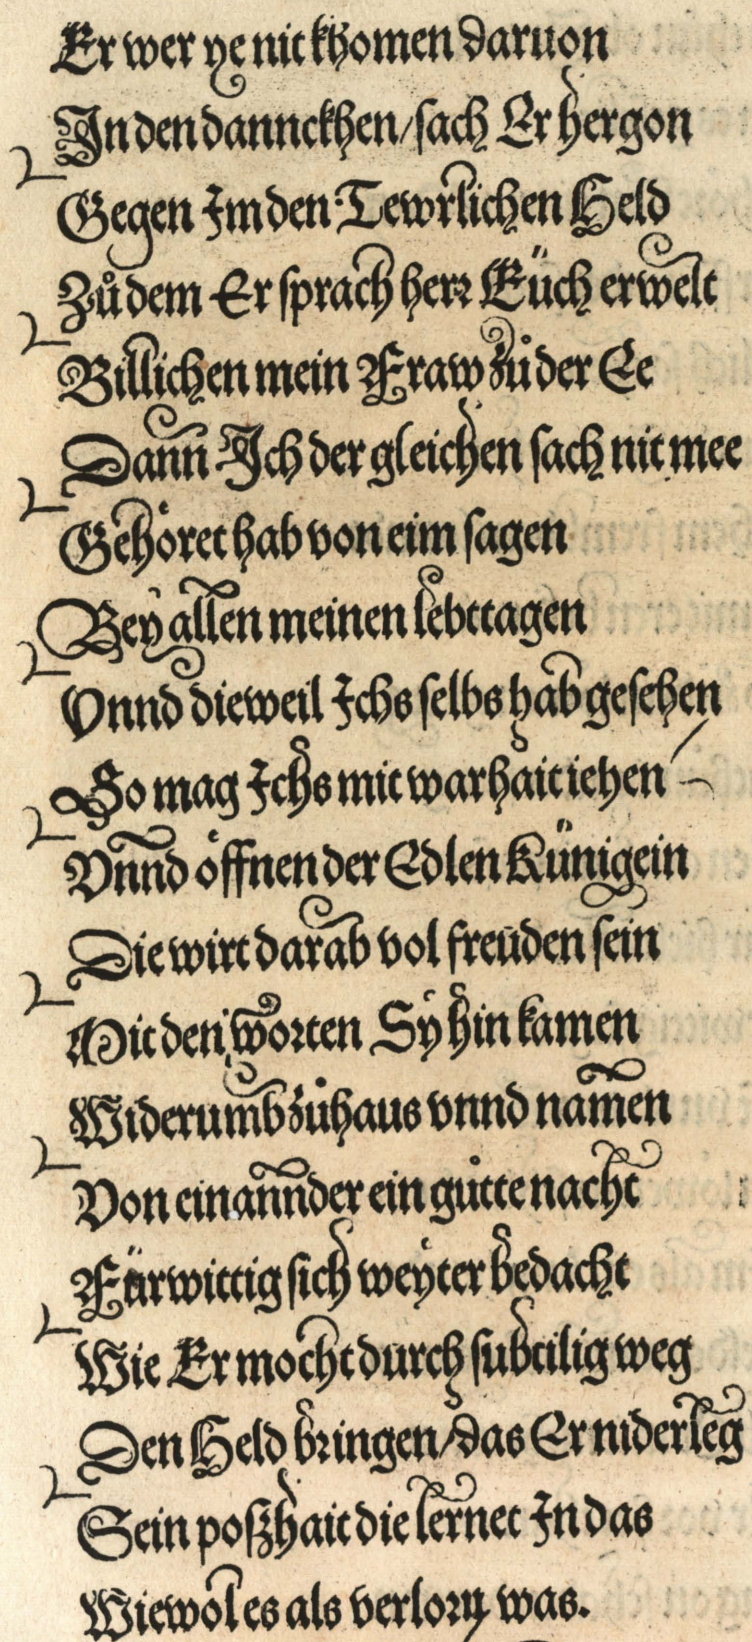 Er wer ye nit khomen daruon
In den dannckhen / sach Er hergon
Gegen Im den Tewrlichen Held
Zů dem Er sprach herr Eüch erwelt
Billichen mein Fraw zů der Ee
Dann Ich der gleichen sach nit mee
Gehöret hab von eim sagen
Bey allen meinen lebttagen
Vnnd dieweil Ichs selbs hab gesehen
So mag Ichs mit warhait iehen
Vnnd öffnen der Edlen Künigein
Die wirt darab vol freüden sein
Mit den worten Sy hin kamen
Widerumb zůhaus vnnd namen
Von einannder ein gůtte nacht
Fürwittig sich weyter bedacht
Wie Er mocht durch subtilig weg
Den Held bringen / das Er niderleg
Sein poßhait die lernet In das
Wiewol es als verlorn was.